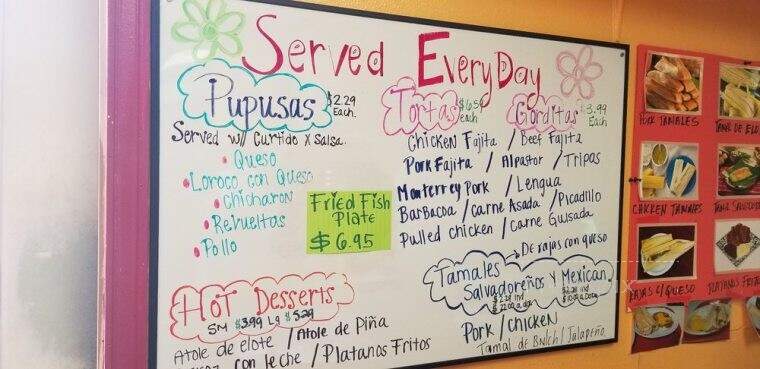 Served EveryDay
Pupusas $2.29 Each.
Served w/ Curtido x Salsa.
• Queso
• Loroco con Queso
• Chicharon
• Revueltas
• Pollo
Fried Fish
Plate
$6.95
Tortas each
Gorditas $3.99 Each
Chicken Fajita / Beef Fajita
Pork Fajita / Alpastor / Tripas
Monterrey Pork / Lengua
Barbacoa / Carne Asada / Picadillo
Pulled chicken / Carne Guisada
De rajas con queso
Tamales
Salvadoreños y Mexican.
Pork / Chicken
Tamal de / Jalapeño
Hot Desserts
SM $3.99 Lg $5.29
Atole de elote / Atole de Piña
con leche / Platanos Fritos
Pork Tamales
Tamal de
Chicken Tamales
Rajas c/ Queso
Platanos